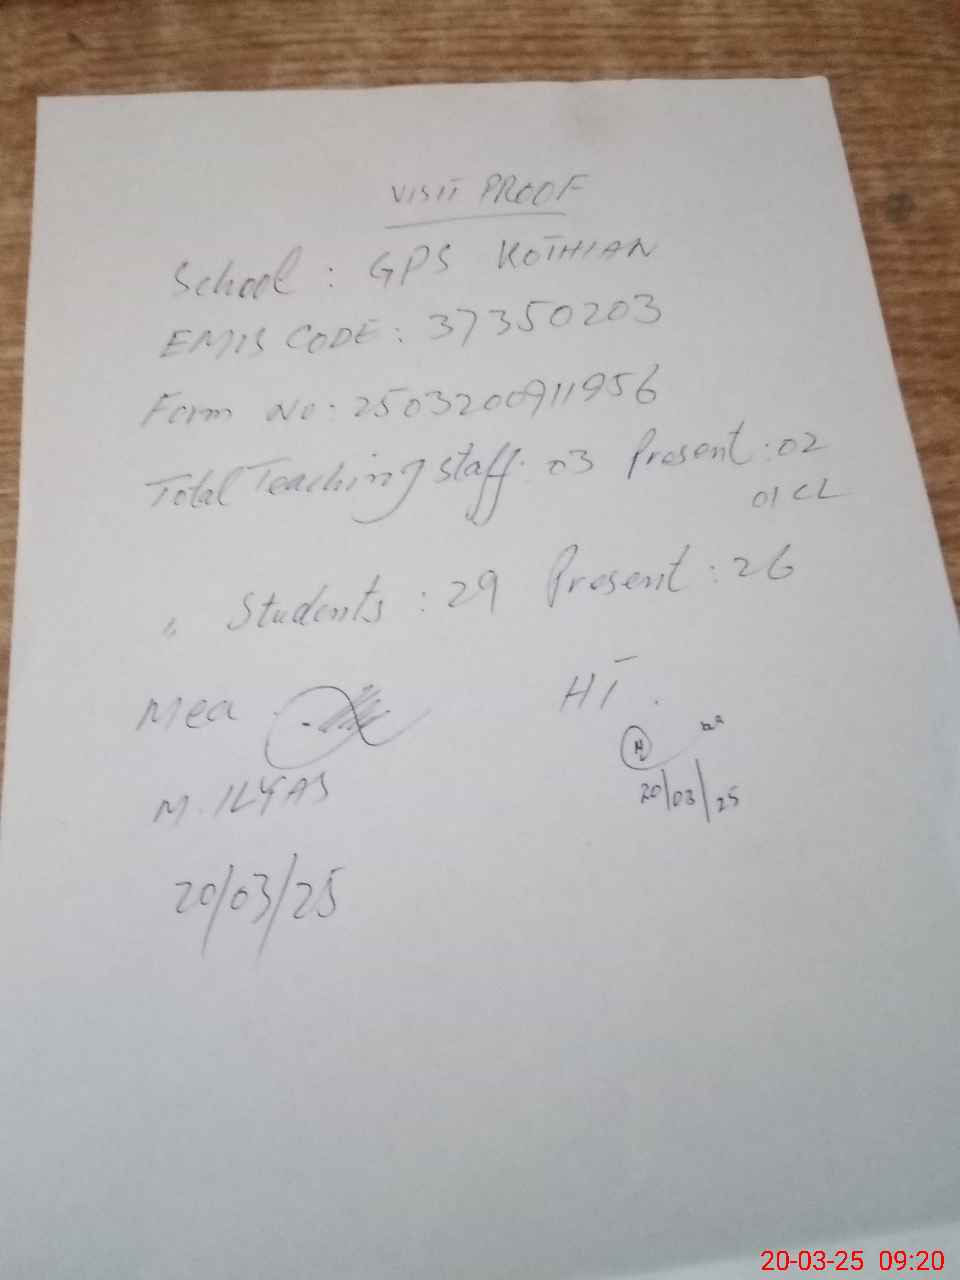 VISIT PROOF
School : GPS KOTHIAN
EMIS CODE : 37350203
Form No : 2503200911956
Total Teaching staff : 03 Present : 02
01 CL
" Students : 29 Present : 26
Mea
HT.
M. ILYAS
20/03/25
20/03/25
20-03-25 09:20